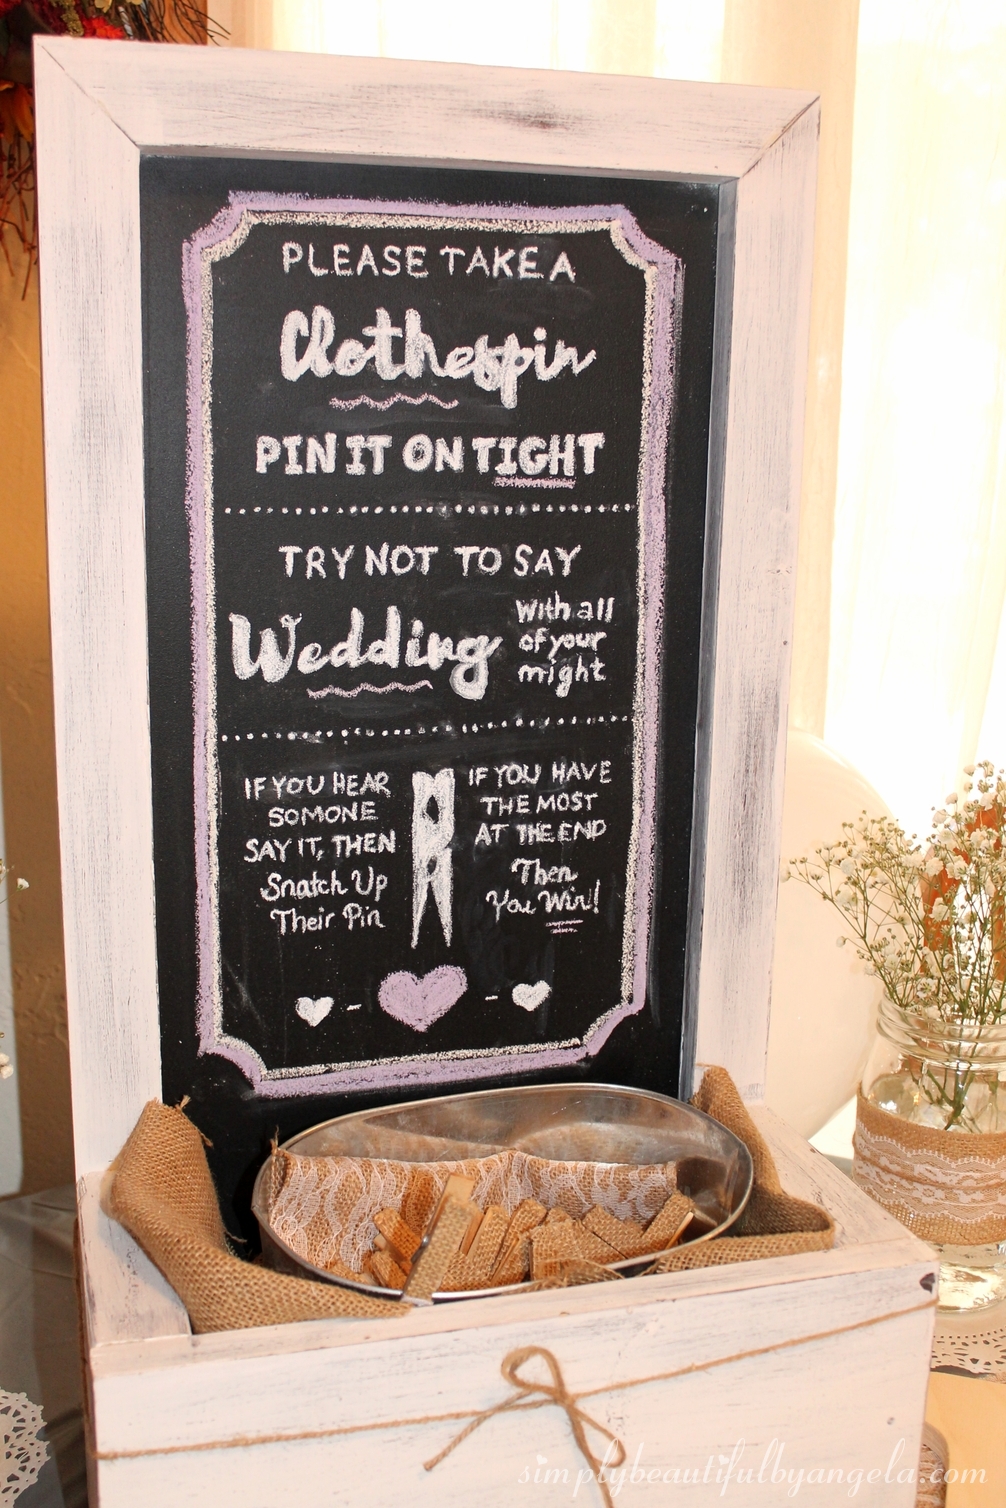 PLEASE TAKE A
Clothespin
PIN IT ON TIGHT
TRY NOT TO SAY
Wedding
With all
of your
might
IF YOU HEAR
SOMONE
SAY IT, THEN
Snatch Up
Their Pin
IF YOU HAVE
THE MOST
AT THE END
Then
You Win!
simplybeautifulbyangela.com